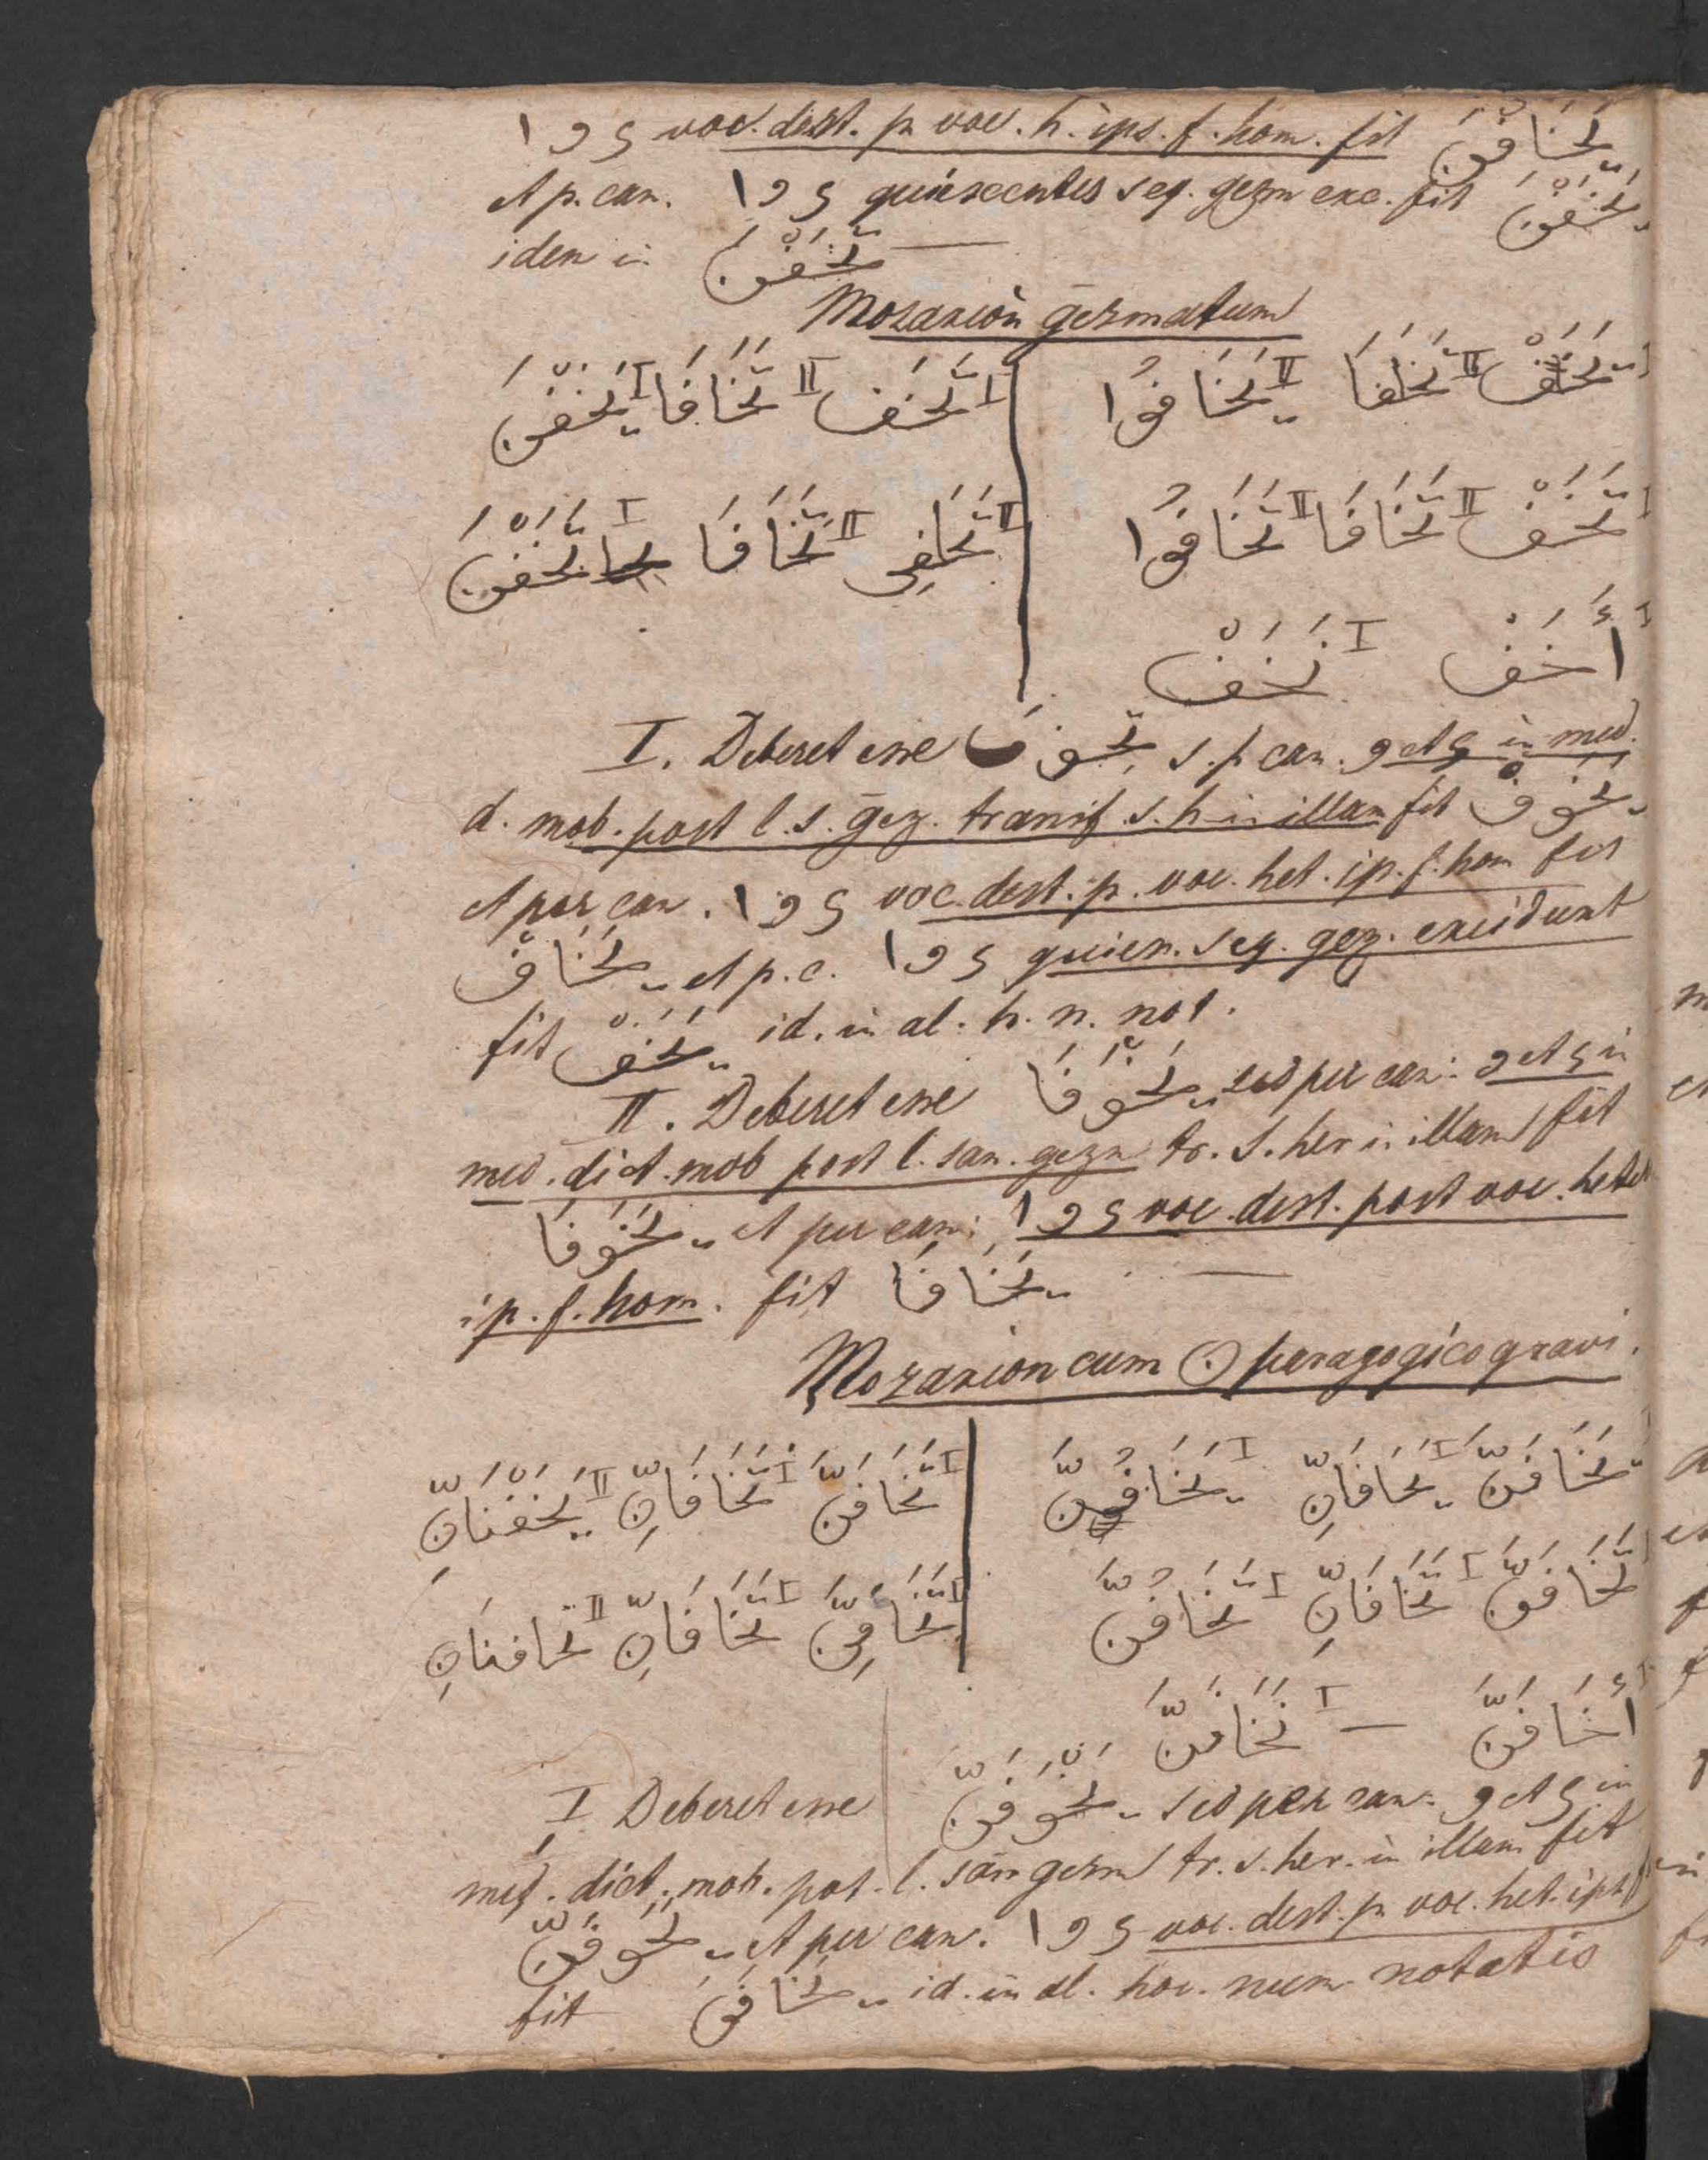 ا و ی voc. dest. p voc. h. ips. f. hom. fit يَخَافْنَ
et p. can. ا و ی quiescentes seq. gezm exc. fit يَخَفْنَ
idem in تَخَفْنَ
Mozarion gezmatum
I يَخَفْ II يَخَافَا II يَخَافُوا I تَخَفْ II تَخَافَا I يَخَفْنَ
I تَخَفْ II تَخَافَا II تَخَافُوا II تَخَافِى II تَخَافَا I تَخَفْنَ
I أَخَفْ I نَخَفْ
I. Deberet esse يَخْوَفْ s. p can. و et ی in med.
d. mob. post l. s. gez. transf. s. h in illam fit يَخَوْفْ
et per can. ا و ی voc. dest. p. voc. het. ip. f. hom fit
يَخَافْ et p. c. ا و ی quien. seq. gez. excidunt
fit يَخَفْ id. in al. h. n. not.
II. Deberet esse يَخْوَفَا sed per can: و et ی in
med. dict. mob post l. san. gezm tr. s. her in illam fit
يَخَوْفَا et per can: ا و ی voc. dest. post voc. heter
ip. f. hom. fit يَخَافَا
Mozarion cum ن paragogico gravi.
يَخَافَنَّ I يَخَافَانِّ I يَخَافُنَّ I تَخَافَنَّ I تَخَافَانِّ II يَخَفْنَانِّ
تَخَافَنَّ I تَخَافَانِّ I تَخَافُنَّ I تَخَافِنَّ I تَخَافَانِّ II تخافنانِ
I أَخَافَنَّ — I نَخَافَنَّ
I Deberet esse يَخْوَفَنَّ sed per can: و et ی in
med. dict. mob. pos. l. san gezm tr. s. her. in illam fit
يَخَوْفَنَّ et per can. ا و ی voc. dest. p voc. het. ips f
fit يَخَافَنَّ id. in al. hoc. num notatis